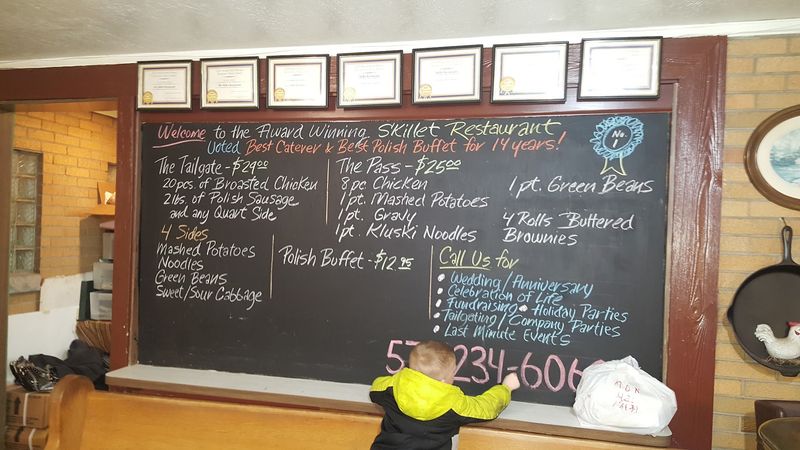 Welcome to the Award Winning Skillet Restaurant
Voted Best Caterer & Best Polish Buffet for 14 years!
No. 1
The Tailgate - $29.00
20 pcs. of Broasted Chicken
2 lbs. of Polish Sausage
and any Quart Side
4 Sides
Mashed Potatoes
Noodles
Green Beans
Sweet/Sour Cabbage
The Pass - $25.00
8 pc Chicken
1 pt. Mashed Potatoes
1 pt. Gravy
1 pt. Kluski Noodles
1 pt. Green Beans
4 Rolls Buttered
Brownies
Polish Buffet - $12.95
Call Us for
• Wedding/Anniversary
• Celebration of Life
• Fundraising • Holiday Parties
• Tailgating/Company Parties
• Last Minute Events
234-606